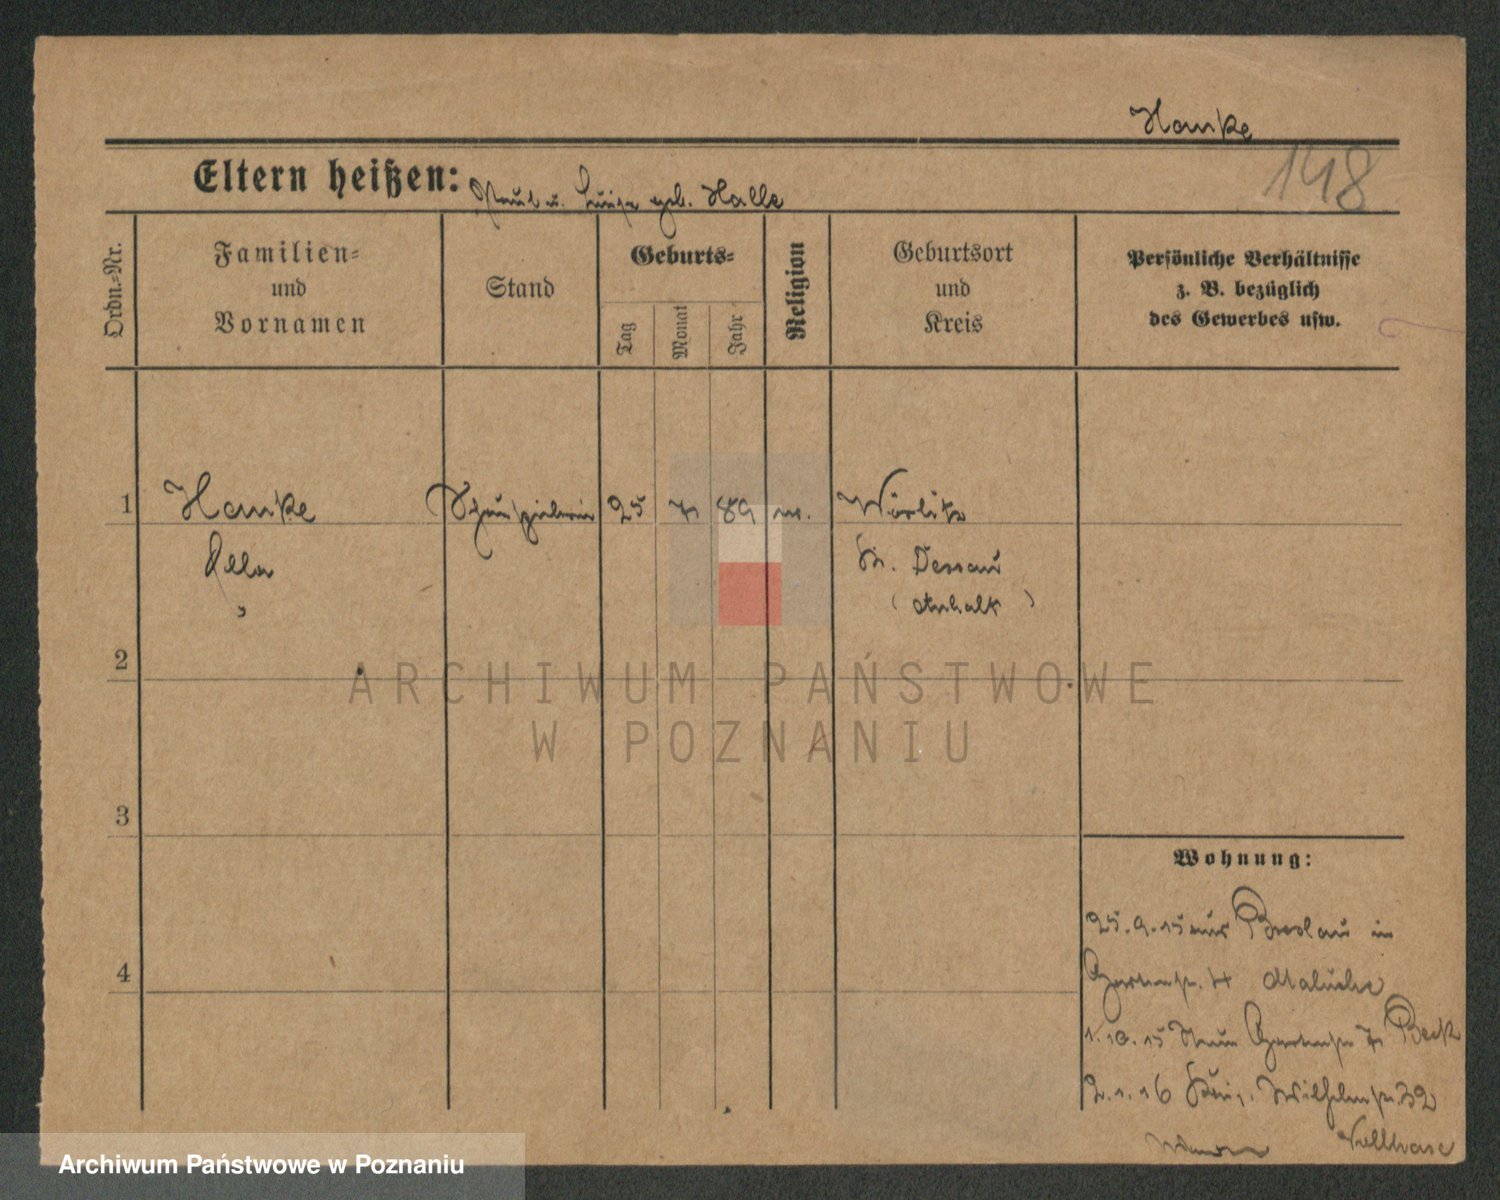 Hanke
148
Eltern heißen: Paul u. Luise geb. Halle
Ordn.=Nr.
Familien=
und
Vornamen
Stand
Geburts=
Tag
Monat
Jahr
Religion
Geburtsort
und
Kreis
Persönliche Verhältnisse
z. B. bezüglich
des Gewerbes usw.
1 Hanke Schauspielerin 25 7 89 Wörlitz
Ella Kr. Dessau
(Anhalt)
2
ARCHIWUM PAŃSTWOWE
W POZNANIU
3
Wohnung:
25.9.15 aus Breslau in
Gartenstr. 4
4
1.10.15 Gartenstr 7 Beck
2.1.16 Wilhelmstr. 32
Vollhase
Archiwum Państwowe w Poznaniu